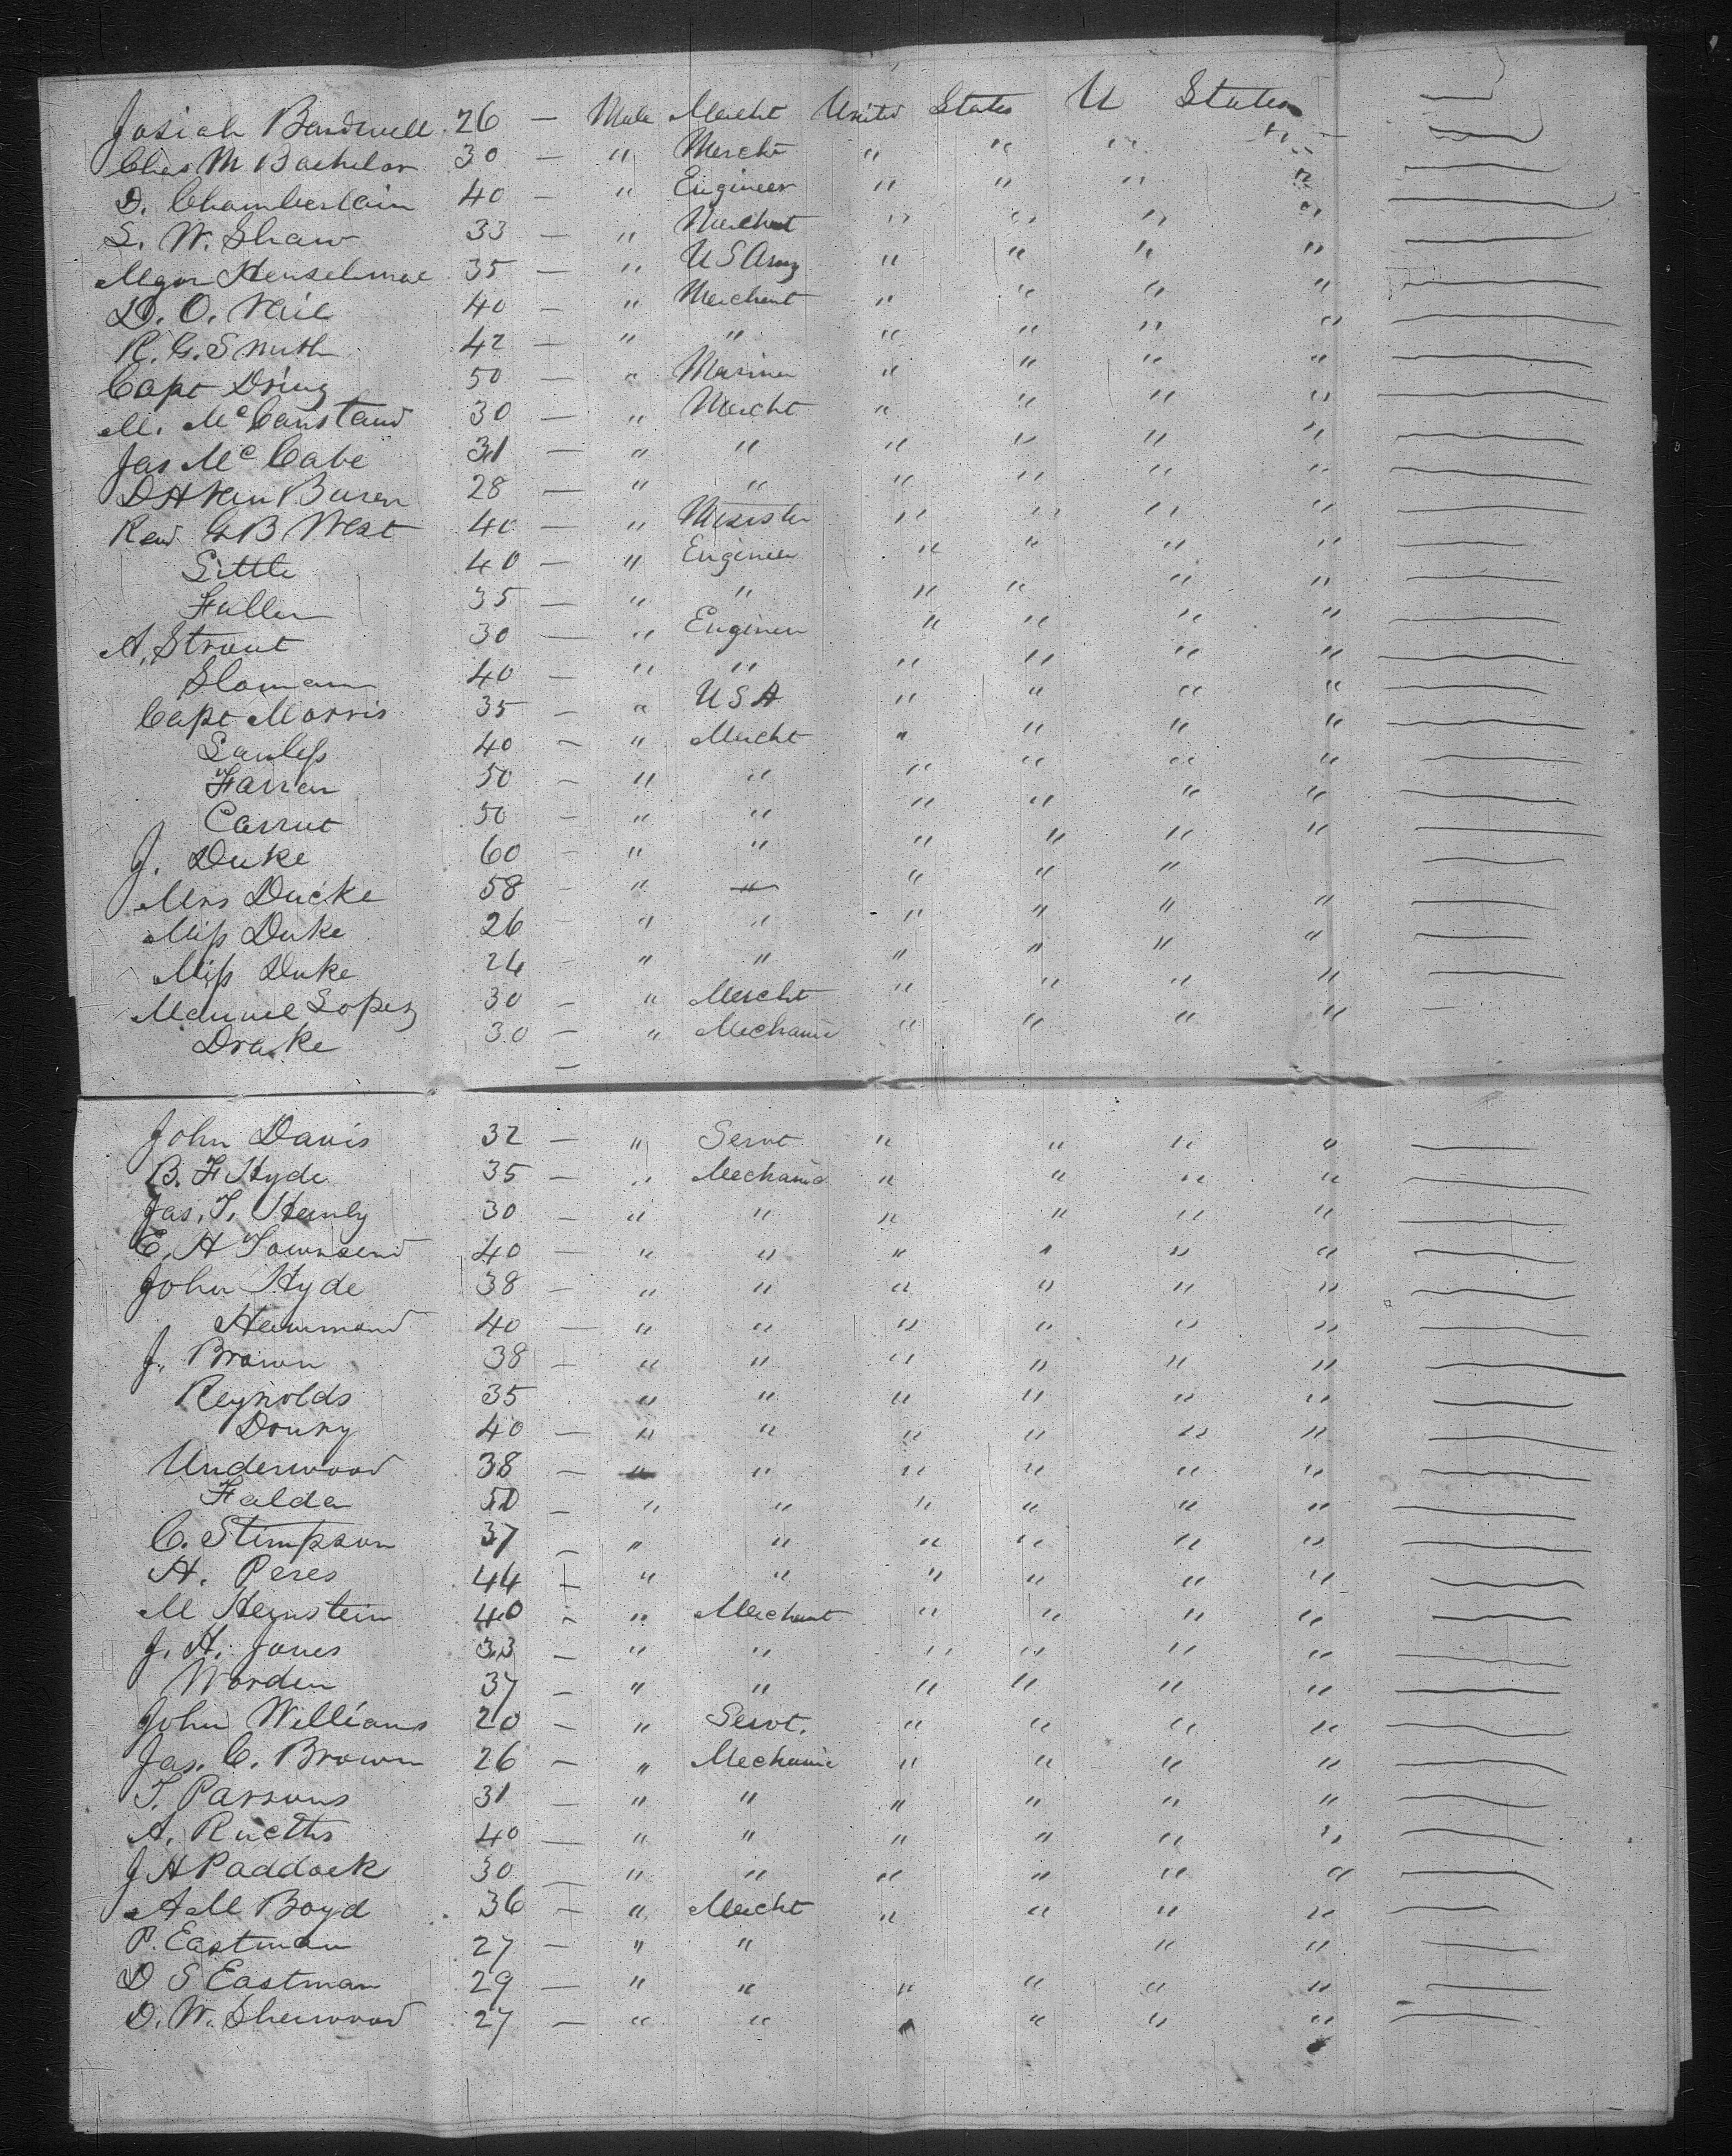 Josiah Bardwell 26 — Male Mercht United States U States
Chas M Bachelor 30 — " Mercht " " " "
D. Chamberlain 40 — " Engineer " " " "
S. W. Shaw 33 — " Merchnt " " " "
35 — " U S Army " " " "
D. O. Neil 40 — " Merchant " " " "
R. G. Smith 42 — " " " " " "
Capt Dring 50 — " Mariner " " " "
M. McCanstand 30 — " Mercht " " " "
Jas McCabe 31 — " " " " " "
D H Van Buren 28 — " " " " " "
Revd G B West 40 — " Minister " " " "
Little 40 — " Engineer " " " "
Fuller 35 — " " " " " "
A. Strout 30 — " Engineer " " " "
Sloman 40 — " " " " " "
Capt Morris 35 — " U S A " " " "
40 — " Mercht " " " "
Farran 50 — " " " " " "
50 — " " " " " "
J. Duke 60 — " " " " " "
Mrs Ducke 58 — " " " " "
Miss Duke 26 — " " " " " "
Miss Duke 24 — " " " " " "
Manuel Lopez 30 — " Mercht " " " "
Drake 30 — " Mechanic " " " "
John Davis 32 — " Servt " " " "
B. F Hyde 35 — " Mechanic " " " "
Jas. T. Henly 30 — " " " " " "
E. H Townsend 40 — " " " " " "
John Hyde 38 — " " " " " "
Hammond 40 — " " " " " "
J. Brown 38 — " " " " " "
Reynolds 35 " " " " " "
Drury 40 — " " " " " "
Underwood 38 — " " " " " "
Falda 50 — " " " " " "
C. Stimpson 37 — " " " " " "
H. Peres 44 — " " " " " "
M Hernstein 40 — " Merchant " " " "
J. H. Jones 33 — " " " " " "
Worden 37 — " " " " " "
John Williams 20 — " Servt. " " " "
Jas. C. Brown 26 — " Mechanic " " " "
T. Parsons 31 — " " " " " "
A. 40 — " " " " " "
J H Paddock 30 — " " " " " "
A M Boyd 36 — " Mercht " " " "
P. Eastman 27 — " " " "
D S Eastman 29 — " " " " " "
D. W. Sherwood 27 — " " " " " "